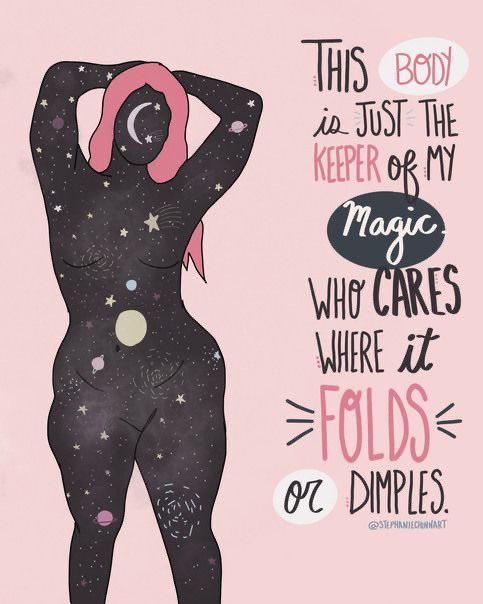 THIS BODY
is JUST THE
KEEPER of MY
Magic.
WHO CARES
WHERE it
FOLDS
or DIMPLES.
@STEPHANIECHINNART